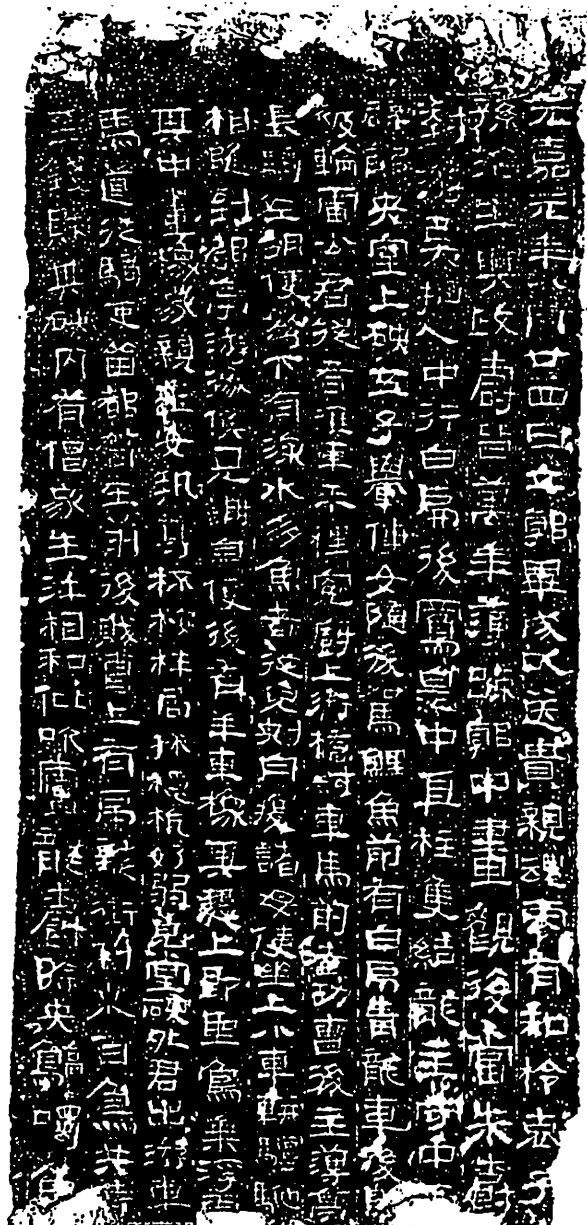 元嘉元年八月廿四日立郭畢成以送貴親魂零有知柃哀子
孫治生興政壽皆萬年薄踈郭中畫觀後當朱爵
對游㒵抽人中行白虎後鳳皇中直柱隻結龍主守中
辟邪央室上硤五子轝僮女隨後駕鯉魚前有白虎青龍車後
被輪雷公君從者推車乎梩冤厨上衛橋尉車馬前者功曹後主簿亭
長騎佐胡使弩下有深水多魚者從兒刺舟渡諸母使坐上小車軿驅馳
相隨到都亭游徼候見謝自便後有羊車橡其槥上即聖鳥乘浮雲
其中畫像家親玉女執尊杯桉柈局㧢檼杬好弱㒵堂硤外君出游車
馬道從騎吏留都督在前後賊曹上有虎龍銜利來百鳥共侍
至錢財其硤內有倡家生汙相和仳吹廬龍爵除央鶴噣魚